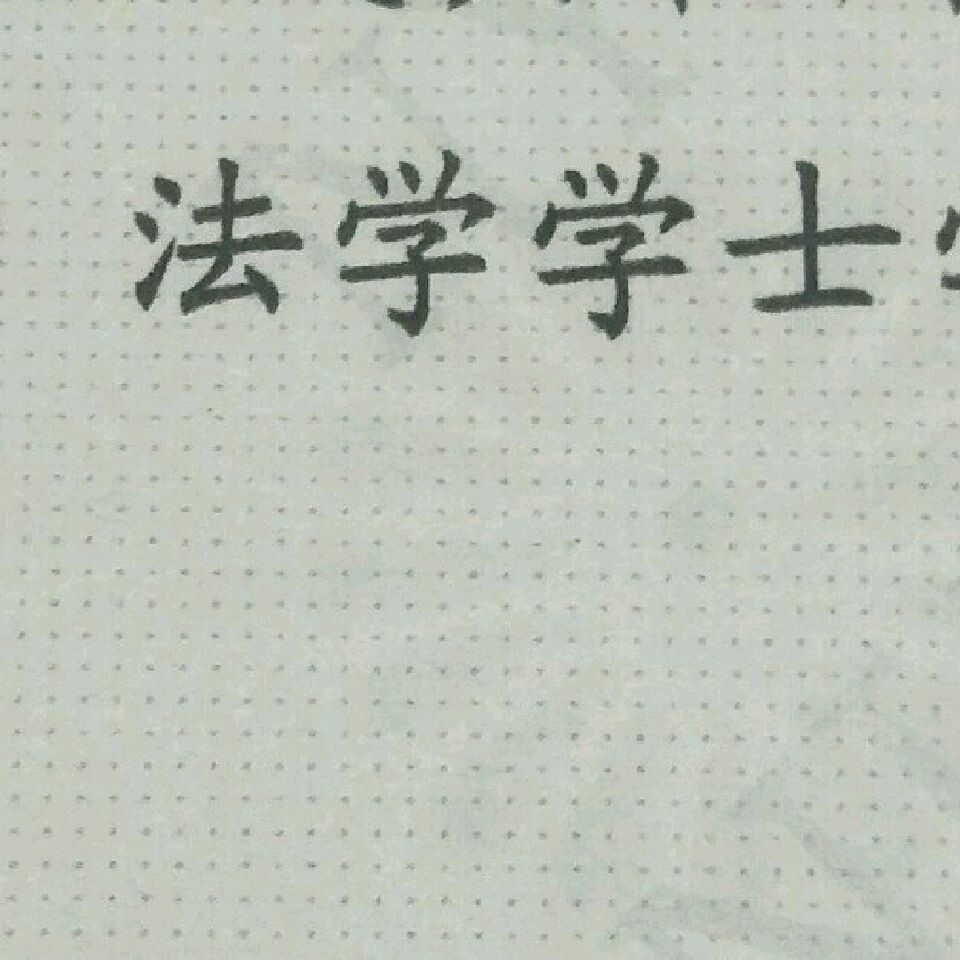 法学学士